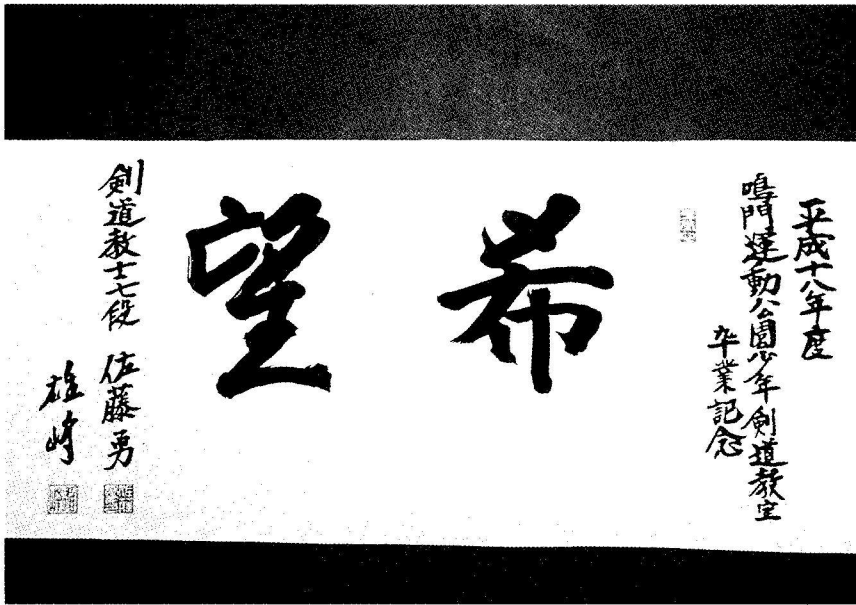 平成十八年度
鳴門運動公園少年剣道教室
卒業記念
希望
剣道教士七段 佐藤勇
雄峰